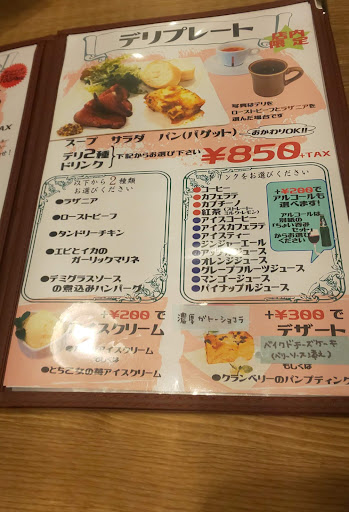 デリプレート
店内
限定
写真はデリを
ローストビーフとラザニアを
選んだ場合です
スープ サラダ パン(バゲット) おかわりOK!!
デリ2種
ドリンク
下記からお選び下さい
¥850+TAX
以下から2種類
お選びください
●ラザニア
●ローストビーフ
●タンドリーチキン
●エビとイカの
ガーリックマリネ
●デミグラスソース
の煮込みハンバーグ
ドリンクをお選びください
●コーヒー
●カフェラテ
●カプチーノ
●紅茶
●アイスコーヒー
●アイスカフェラテ
●アイスティー
●ジンジャーエール
●アップルジュース
●オレンジジュース
●グレープフルーツジュース
●マンゴージュース
●パイナップルジュース
+¥200で
アルコールも
選べます!
アルコールは
別紙の
からお選び
ください
+¥200で
アイスクリーム
アイスクリーム
もしくは
●とちこ乙女の苺アイスクリーム
濃厚ガトーショコラ
+¥300で
デザート
ベイクドチーズケーキ
(ベリーソース添え)
もしくは
●クランベリーのパンプディング
TAX